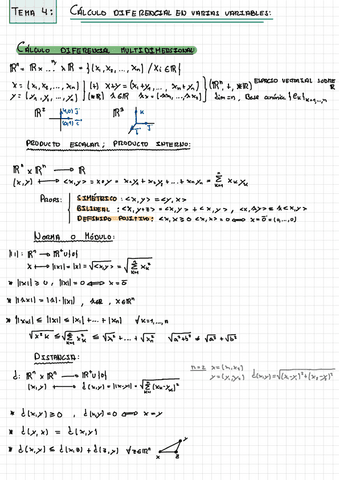 TEMA 4: CÁLCULO DIFERENCIAL EN VARIAS VARIABLES:
CÁLCULO DIFERENCIAL MULTIDIMENSIONAL
ℝⁿ = ℝ x ... x ℝ = {(x₁, x₂, ..., xₙ) / xᵢ ∈ ℝ}
x = (x₁, x₂, ..., xₙ) (+) x+y = (x₁+y₁, ..., xₙ+yₙ) (ℝⁿ, +, *ℝ) ESPACIO VECTORIAL SOBRE ℝ
y = (y₁, y₂, ..., yₙ) (*ℝ) λ∈ℝ λx = (λx₁, ..., λxₙ) dim = n, Base canónica {eₖ}ₖ₌₁,...,ₙ
ℝ² ℝ³
PRODUCTO ESCALAR; PRODUCTO INTERNO:
ℝⁿ x ℝⁿ → ℝ
(x,y) ⟼ <x,y> = x·y = x₁y₁ + x₂y₂ + ... + xₙyₙ = Σₖ₌₁ⁿ xₖyₖ
PROPS: SIMÉTRICO: <x,y> = <y,x>
BILINEAL: <x,y+z> = <x,y> + <x,z>, <x,λy> = λ<x,y>
DEFINIDO POSITIVO: <x,x> ≥ 0 <x,x> = 0 ⟺ x = 0̄ = (0,...,0)
NORMA O MÓDULO:
||·||: ℝⁿ → ℝ⁺∪{0}
x ⟼ ||x|| = |x| = √<x,x> = √Σₖ₌₁ⁿ xₖ²
* ||x|| ≥ 0, ||x|| = 0 ⟺ x = 0̄
* ||λx|| = |λ|·||x||, λ∈ℝ, x∈ℝⁿ
* |xₖ| ≤ ||x|| ≤ |x₁| + ... + |xₙ| ∀k=1,...,n
√x²ₖ ≤ √Σx²ₖ ≤ √x₁² + ... + √xₙ² √a²+b² ≠ √a² + √b²
DISTANCIA:
d: ℝⁿ x ℝⁿ → ℝ⁺∪{0} n=2 x = (x₁,x₂)
(x,y) ⟼ d(x,y) = ||x-y|| = √Σₖ₌₁ⁿ (xₖ-yₖ)² y = (y₁,y₂) d(x,y) = √(x₁-y₁)² + (x₂-y₂)²
* d(x,y) ≥ 0, d(x,y) = 0 ⟺ x = y
* d(y,x) = d(x,y)
* d(x,y) ≤ d(x,z) + d(z,y) ∀z∈ℝⁿ